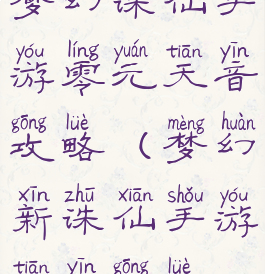 梦幻诛仙手
yóu líng yuán tiān yīn
游零元天音
gōng lüè mèng huàn
攻略(梦幻
xīn zhū xiān shǒu yóu
新诛仙手游
tiān yīn gōng lüè